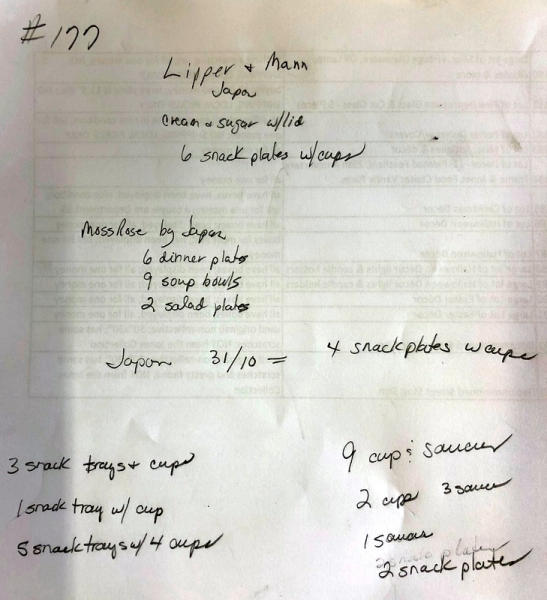 #177
Lipper & Mann
Japan
cream & sugar w/lid
6 snack plates w/cups
MossRose by Japan
6 dinner plates
9 soup bowls
2 salad plates
Japan 31/10 = 4 snack plates w cups
3 snack trays & cups
1 snack tray w/ cup
5 snack trays w/ 4 cups
9 cup & saucer
2 cups 3 sauce
1 saucer
2 snack plates